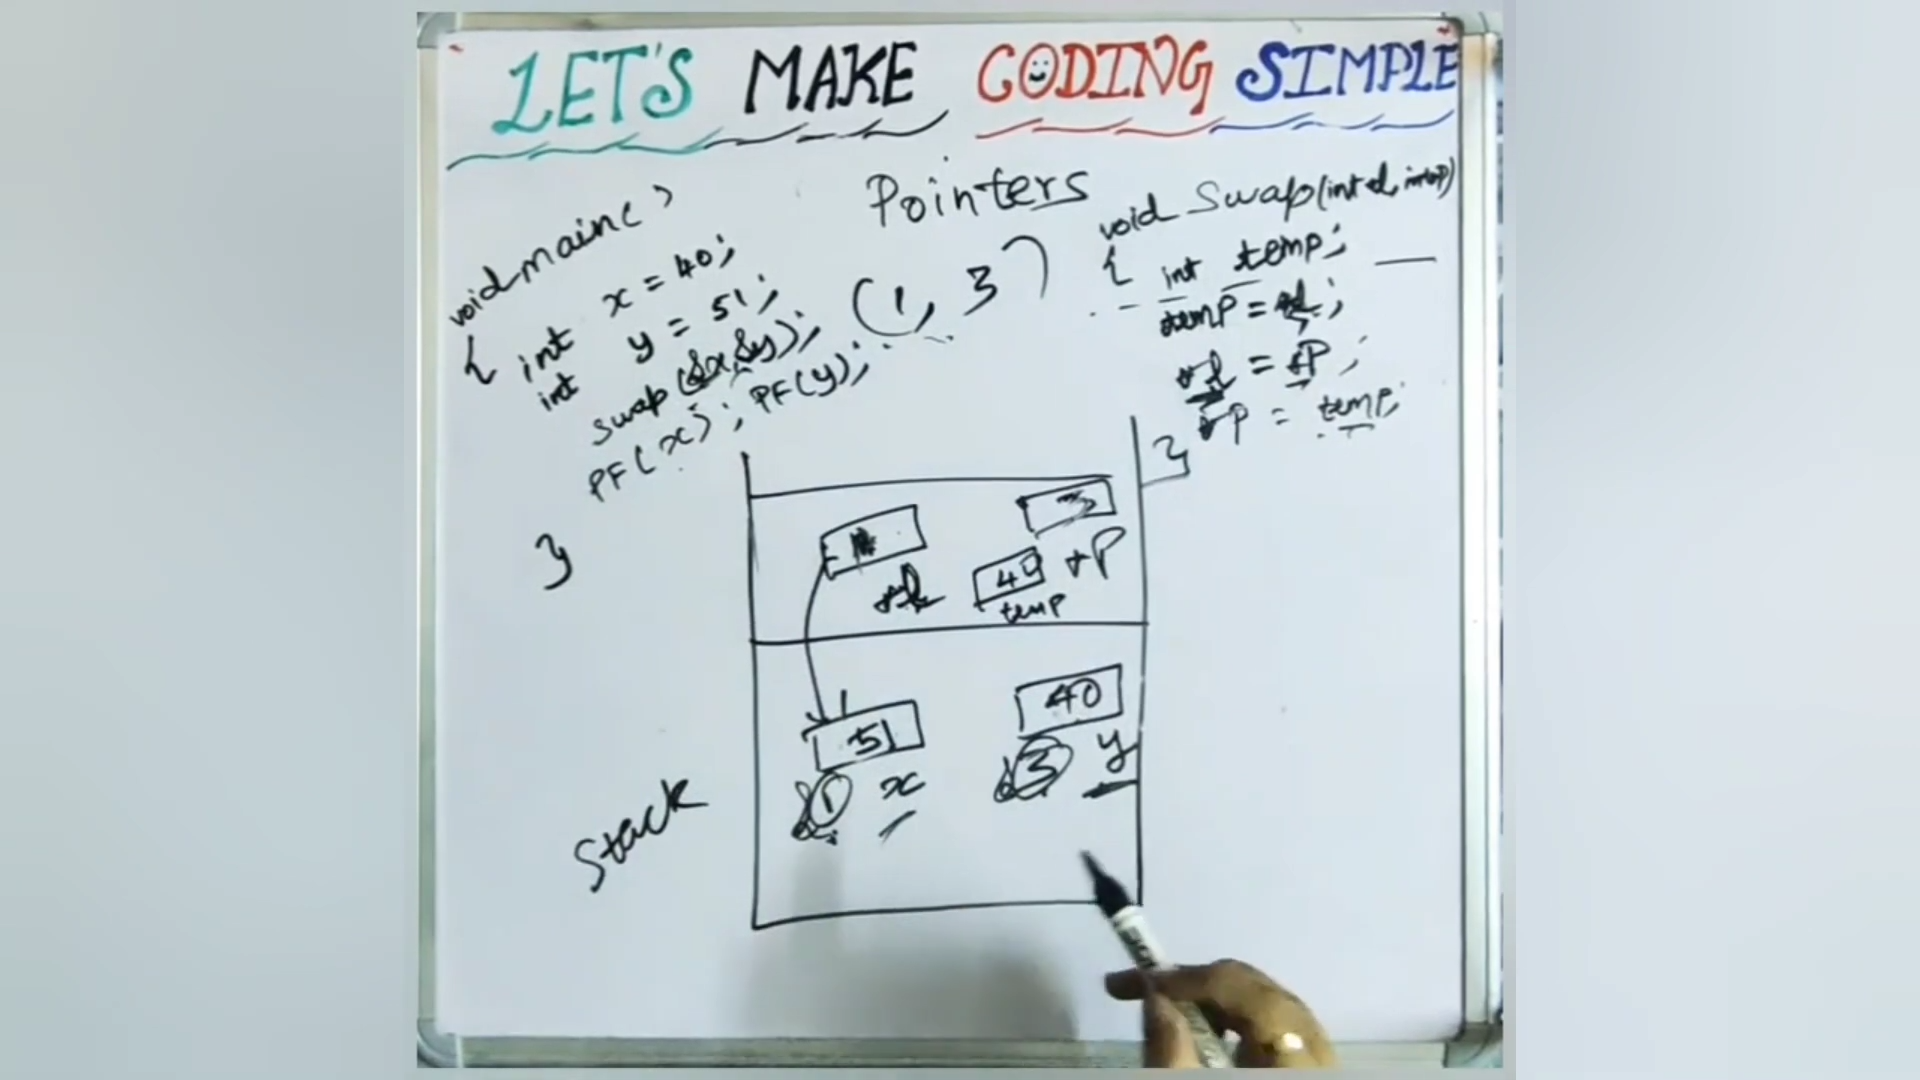 LET'S MAKE CODING SIMPLE
Pointers
void main()
{ int x = 40;
int y = 51;
swap (&x, &y); (1, 3)
PF(x); PF(y);
}
void swap(int
{ int temp;
temp =
= *P;
*P = temp;
}
3
*P
40
temp
51
40
1 x
3 y
Stack